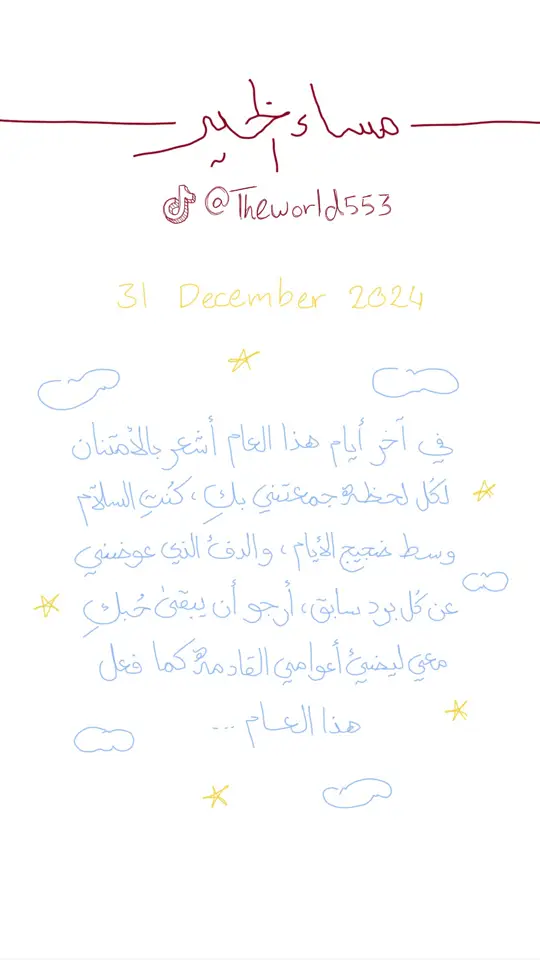 مساء الخير
@Theworld553
31 December 2024
في آخر أيام هذا العام أشعر بالأمتنان
لكل لحظة جمعتني بكِ، كنتِ السلام
وسط ضجيج الأيام، والدفُ الذي عوضني
عن كُل برد سابق، أرجو أن يبقىٰ حُبكِ
معي ليضيئ أعوامي القادمة كما فعل
هذا العـام ...